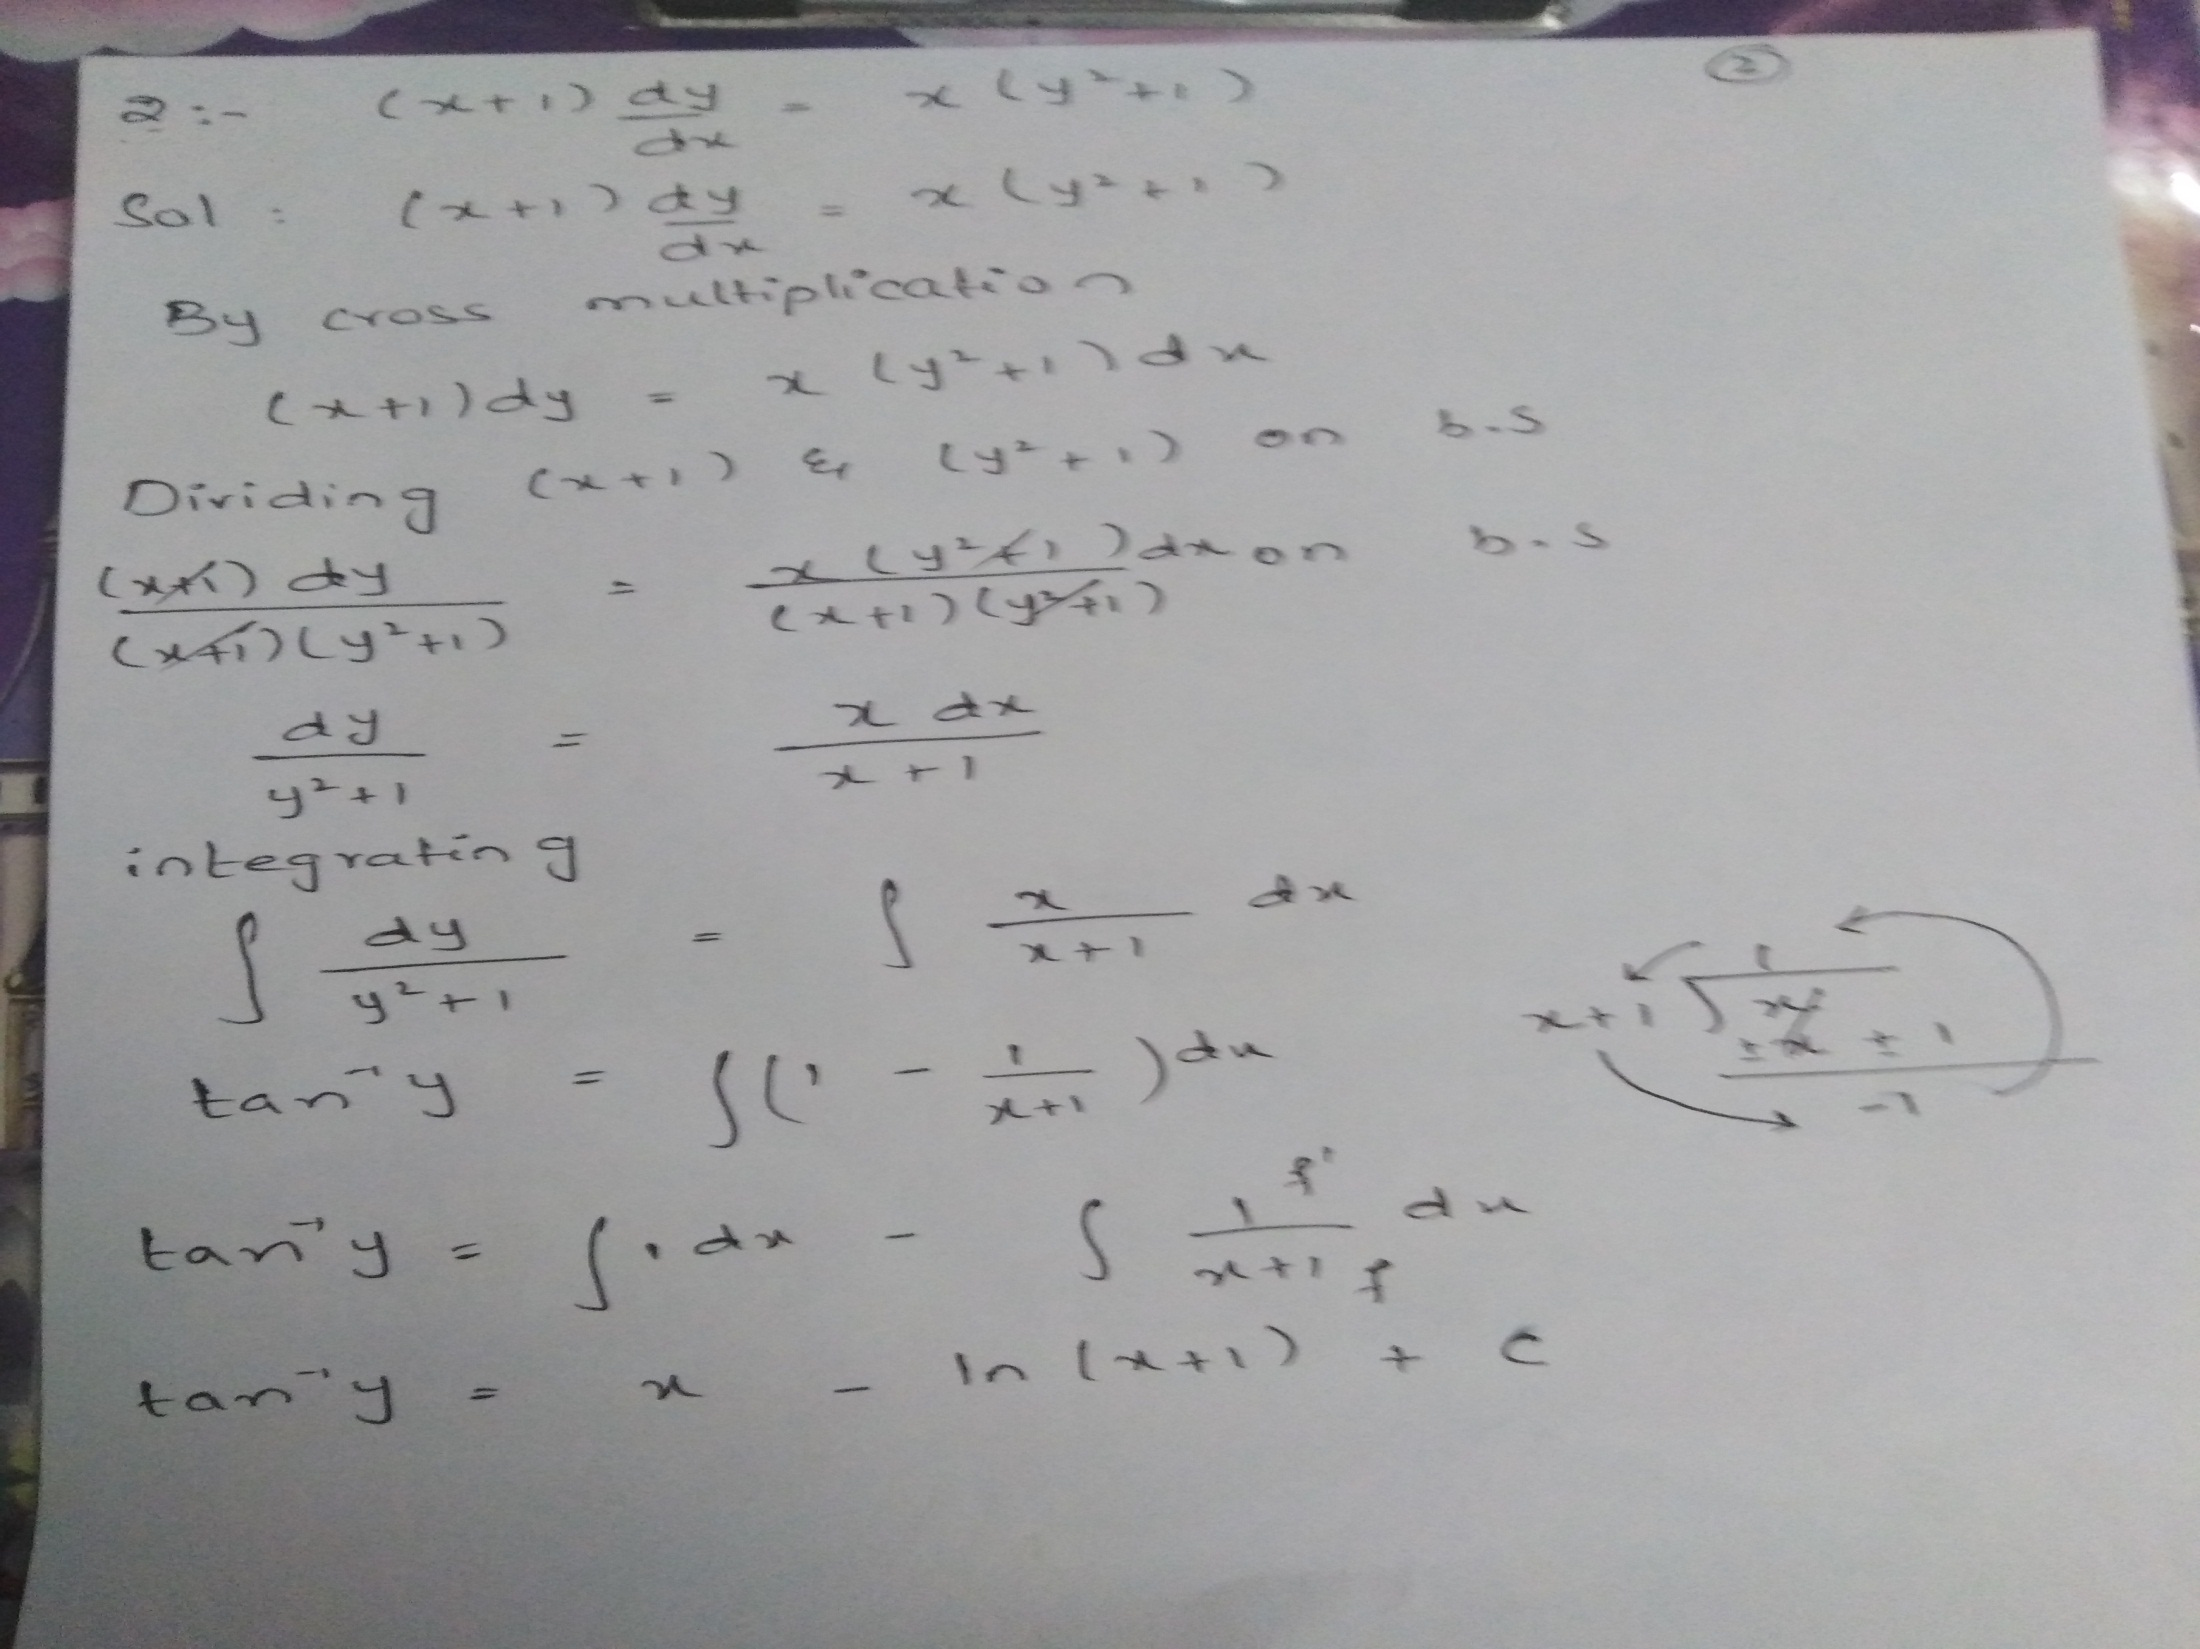 ②
2 :- (x+1) dy/dx = x (y²+1)
Sol : (x+1) dy/dx = x (y²+1)
By cross multiplication
(x+1) dy = x (y²+1) dx
Dividing (x+1) & (y²+1) on b.s
(x+1) dy / (x+1)(y²+1) = x (y²+1) dx / (x+1)(y²+1) on b.s
dy / y²+1 = x dx / x+1
integrating
∫ dy / y²+1 = ∫ x / x+1 dx
tan⁻¹y = ∫(1 - 1/x+1) dx
1
x+1 ) x
± x ± 1
-1
tan⁻¹y = ∫1 dx - ∫ 1 f' / x+1 f dx
tan⁻¹y = x - ln (x+1) + c